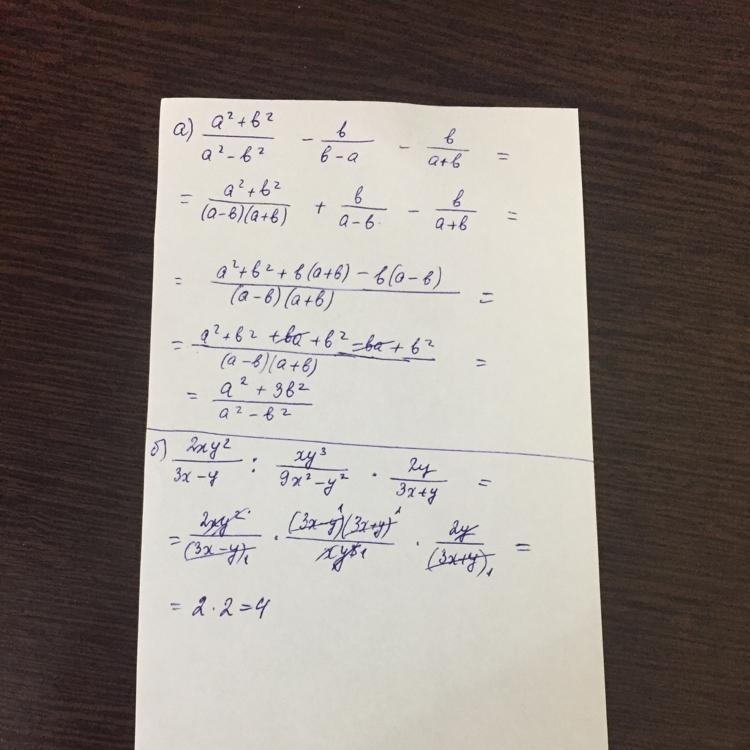 а) (a² + b²)/(a² − b²) − b/(b − a) − b/(a + b) =
= (a² + b²)/((a − b)(a + b)) + b/(a − b) − b/(a + b) =
= (a² + b² + b(a + b) − b(a − b))/((a − b)(a + b)) =
= (a² + b² + ba + b² − ba + b²)/((a − b)(a + b)) =
= (a² + 3b²)/(a² − b²)
б) 2xy²/(3x − y) : xy³/(9x² − y²) · 2y/(3x + y) =
= 2xy²/(3x − y)₁ · (3x − y)¹(3x + y)¹/xy³₁ · 2y/(3x + y)₁ =
= 2 · 2 = 4